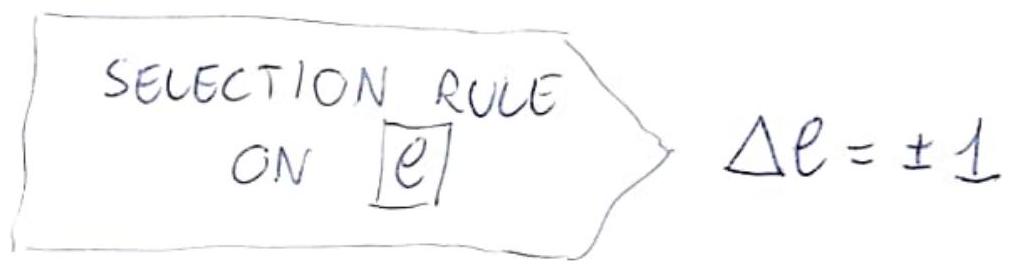 SELECTION RULE
ON ℓ
Δℓ = ± 1